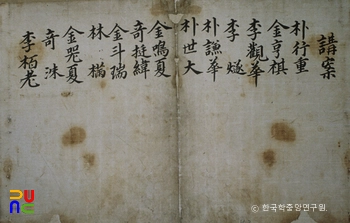 講案
朴行重
金亨棋
李觀華
李㷞
朴謙華
朴世大
金鳴夏
奇挺緯
金斗瑞
林橫
金罖夏
奇沭
李栢老
© 한국학중앙연구원